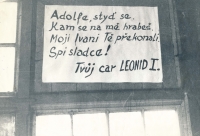 Adolfe, styď se.
Kam se na mě hrabeš.
Moji Ivani Tě překonali.
Spi sladce!
Tvůj car LEONID I.